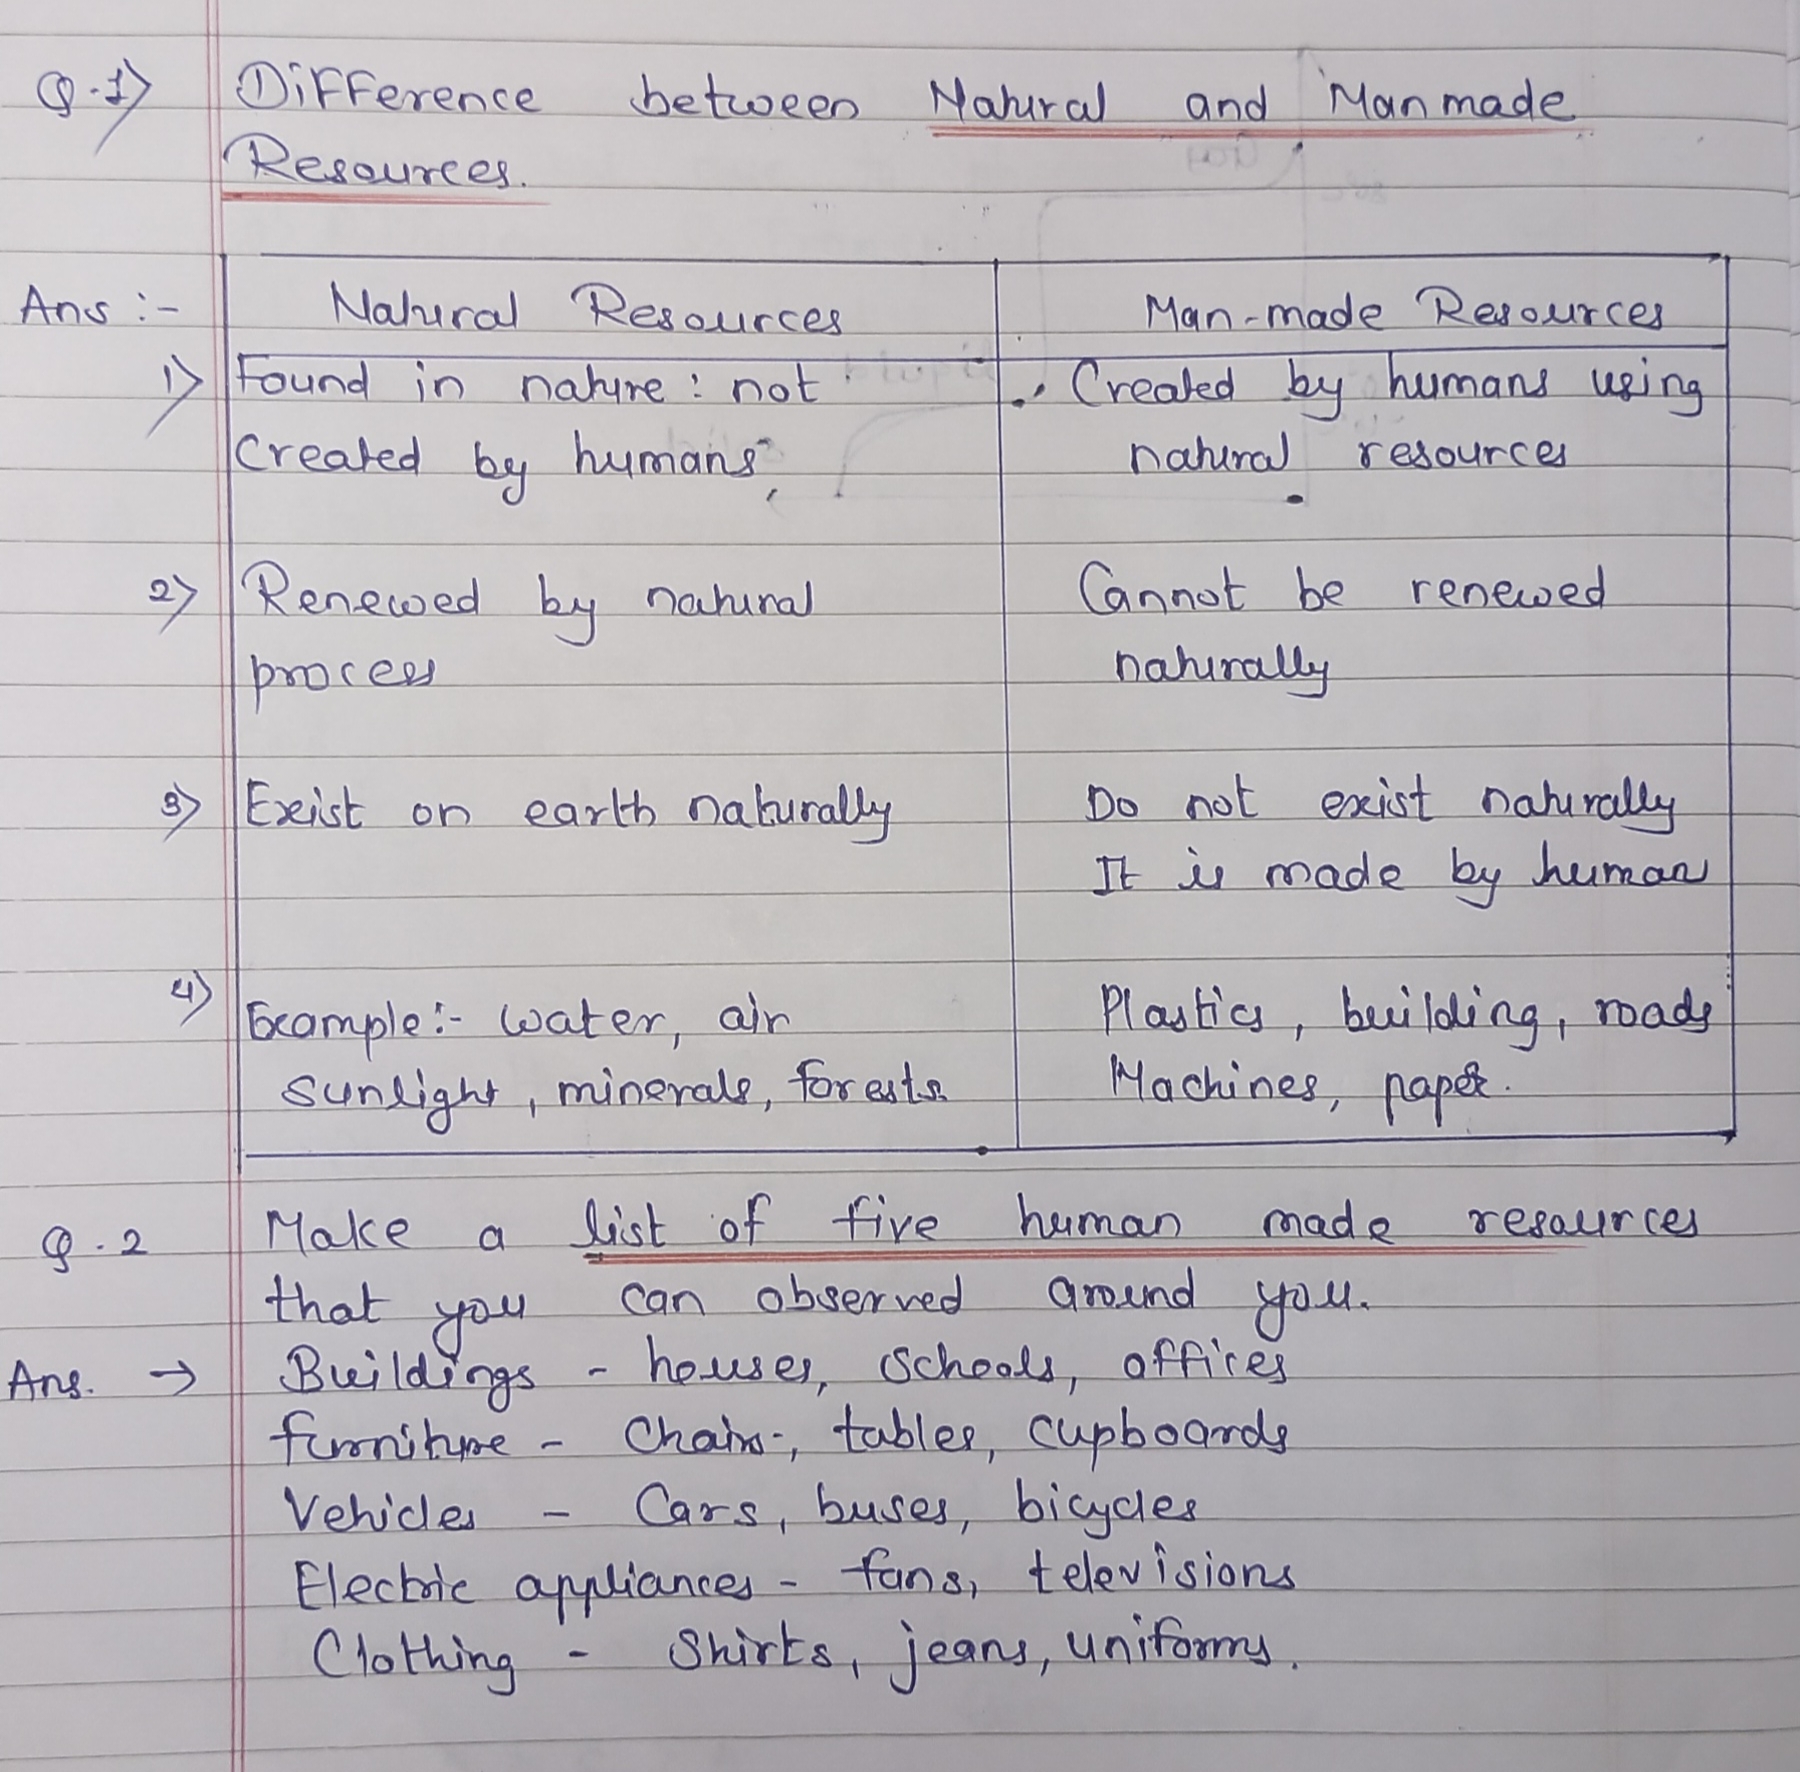 Q.1) Difference between Natural and Manmade
Resources.
Ans :- Natural Resources Man-made Resources
1) Found in nature : not . Created by humans using
Created by humans, natural resources
2) Renewed by natural Cannot be renewed
process naturally
3) Exist on earth naturally Do not exist naturally
It is made by human
4) Example:- water, air Plastics, building, roads
sunlight, minerals, forests. Machines, paper.
Q.2 Make a list of five human made resources
that you can observed around you.
Ans. → Buildings - houses, Schools, offices
furniture - Chairs, tables, cupboards
Vehicles - Cars, buses, bicycles
Electric appliances - fans, televisions
Clothing - Shirts, jeans, uniforms.